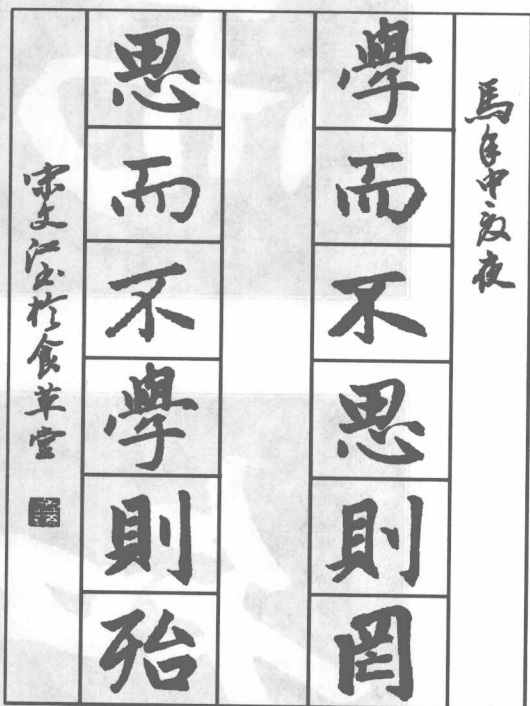 馬年中夏夜
學而不思則罔
思而不學則殆
宋文江书於食草堂